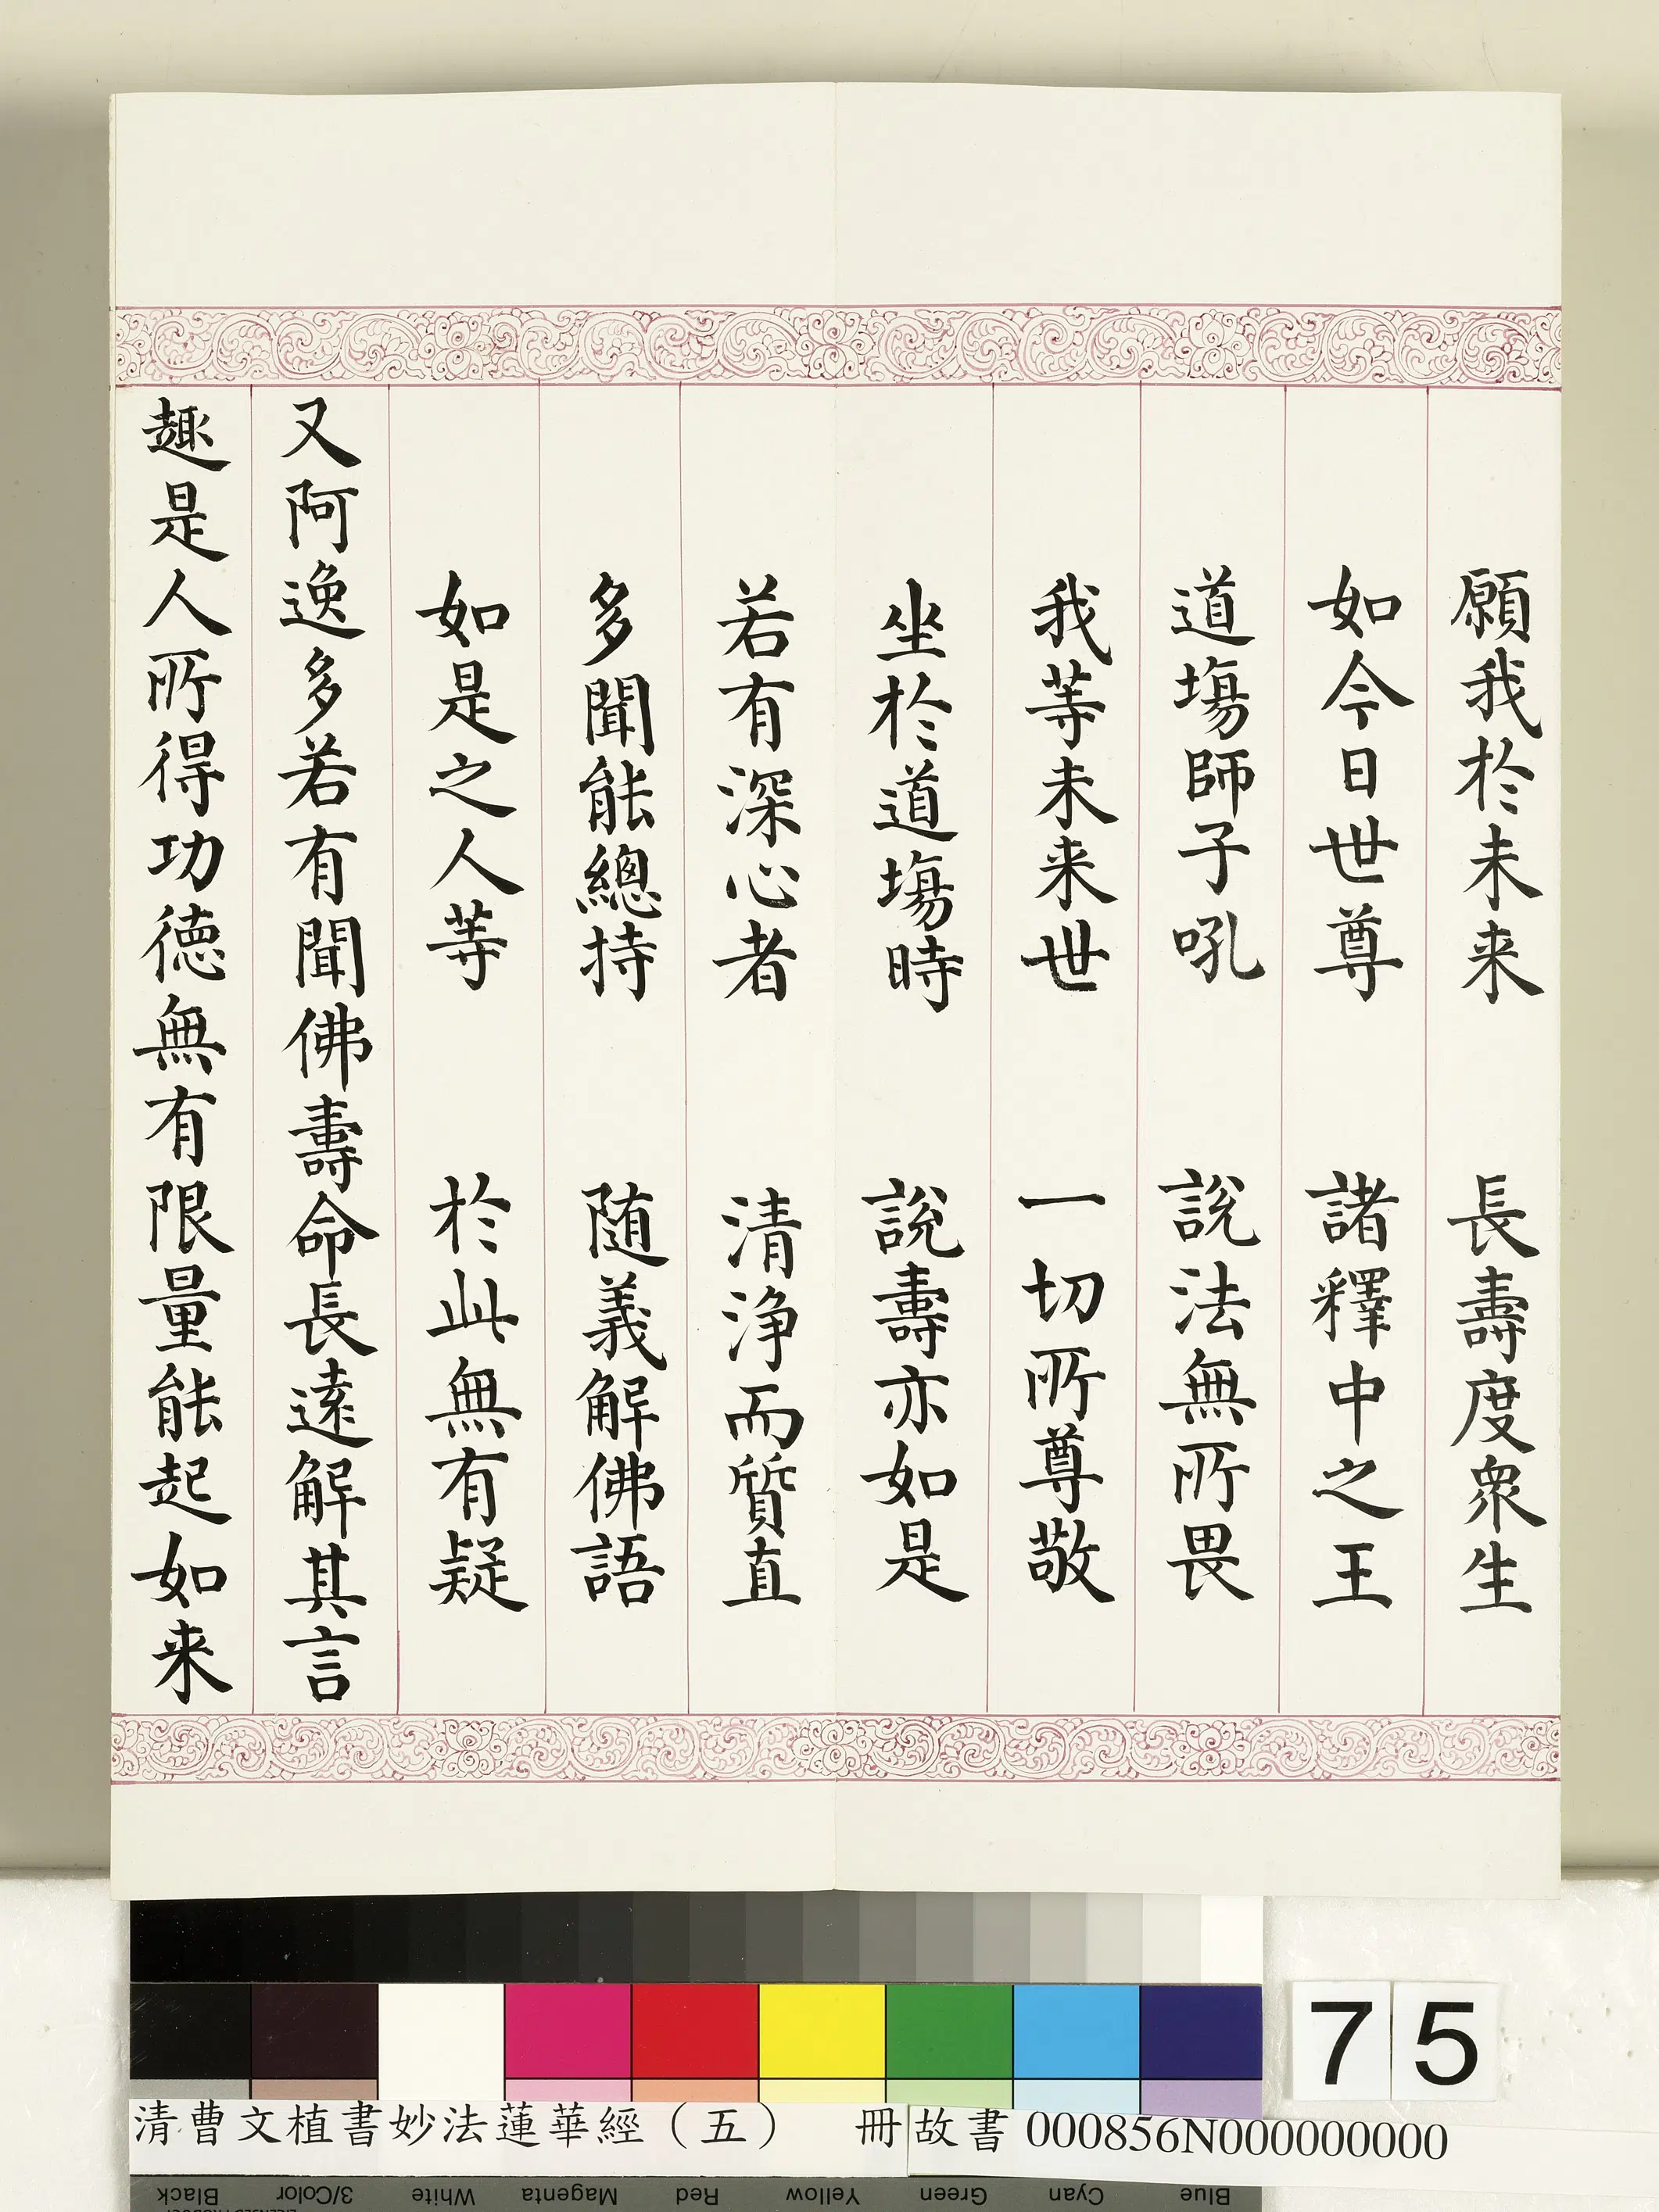 願我於未来　長壽度衆生
如今日世尊　諸釋中之王
道塲師子吼　說法無所畏
我等未来世　一切所尊敬
坐於道塲時　說壽亦如是
若有深心者　清淨而質直
多聞能總持　随義解佛語
如是之人等　於此無有疑
又阿逸多若有聞佛壽命長遠解其言
趣是人所得功德無有限量能起如来
75
清曹文植書妙法蓮華經（五）　冊故書000856N000000000
Black 3/Color White Magenta Red Yellow Green Cyan Blue